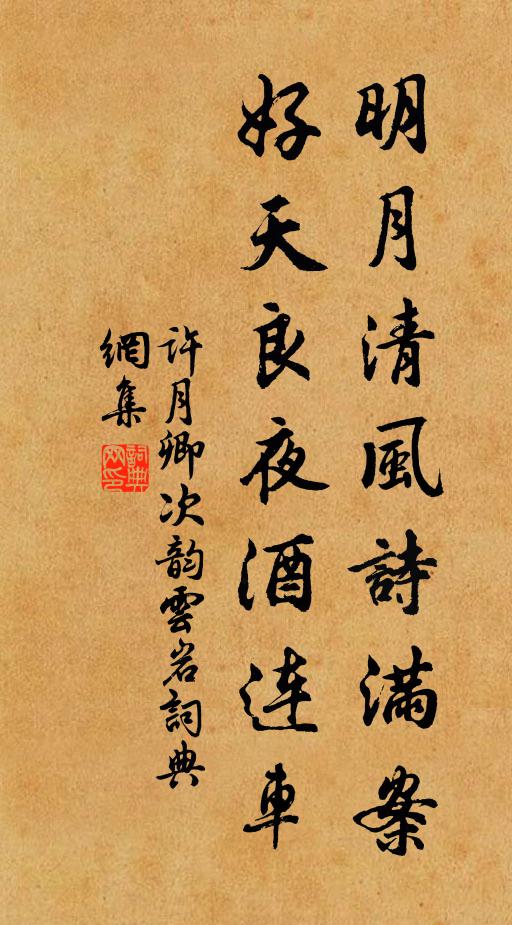 明月清風詩滿案
好天良夜酒连車
許月卿次韵雲岩詞典
網集
詞典
网印